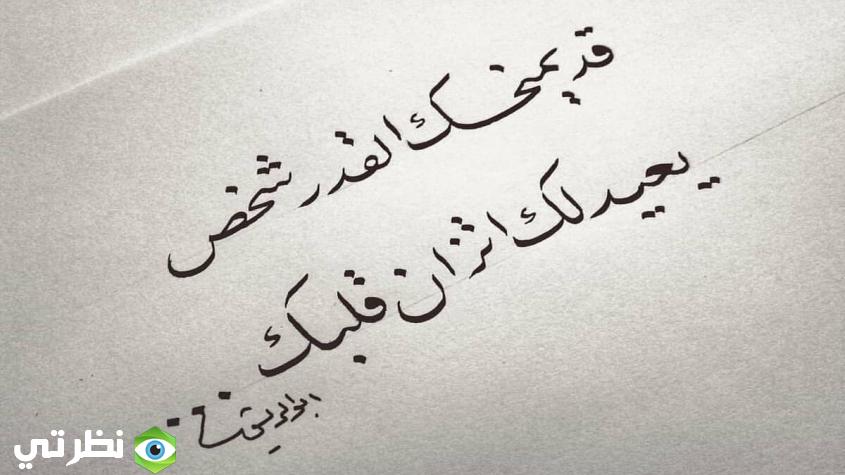 قد يمنحك القدر شخص
يعيد لك اتزان قلبك
نظرتي